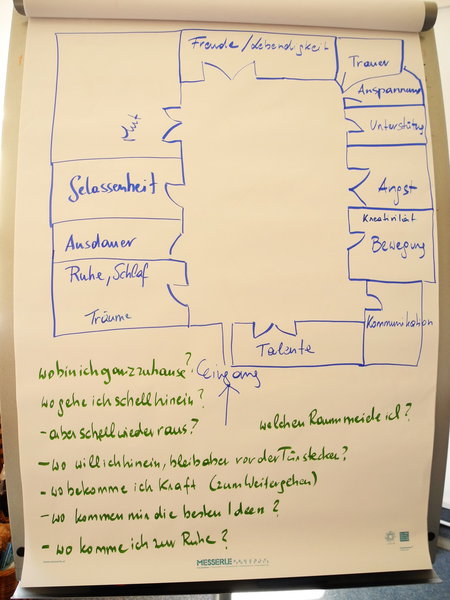 Freude/Lebendigkeit
Trauer
Anspannung
Unterstütg
Wut
Gelassenheit
Angst
Kreativität
Ausdauer
Bewegung
Ruhe, Schlaf
Träume
Kommunikation
Talente
Eingang
wo bin ich ganz zuhause?
wo gehe ich schell hinein?
- aber schell wieder raus?
welchen Raum meide ich?
- wo will ich hinein, bleib aber vor der Tür stecken?
- wo bekomme ich Kraft (zum Weitergehen)
- wo kommen mir die besten Ideen?
- wo komme ich zur Ruhe?
MESSERLE